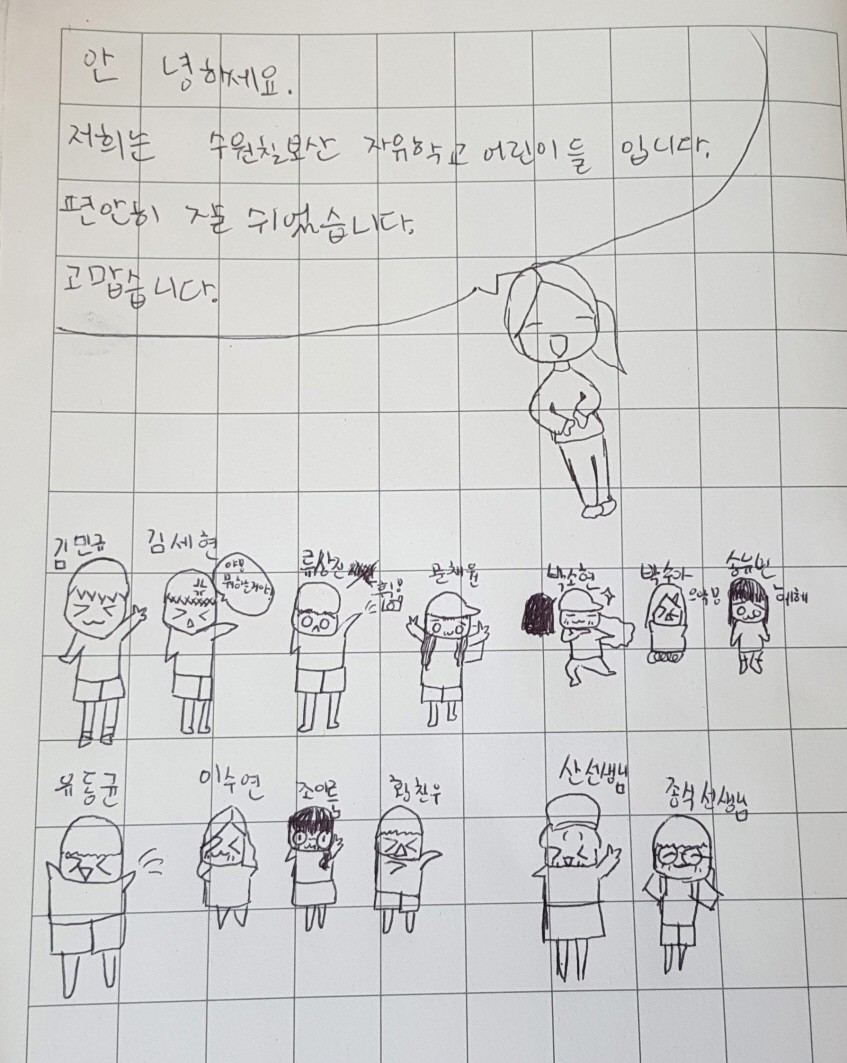 안녕하세요.
저희는 수원칠보산 자유학교 어린이들 입니다.
편안히 잘 쉬었습니다.
고맙습니다.
김민규 김세현 류상진 문채원 박소현 박수아
야!
유동균 이수연 조이름 황찬우 산선생님 종식선생님
헤헤